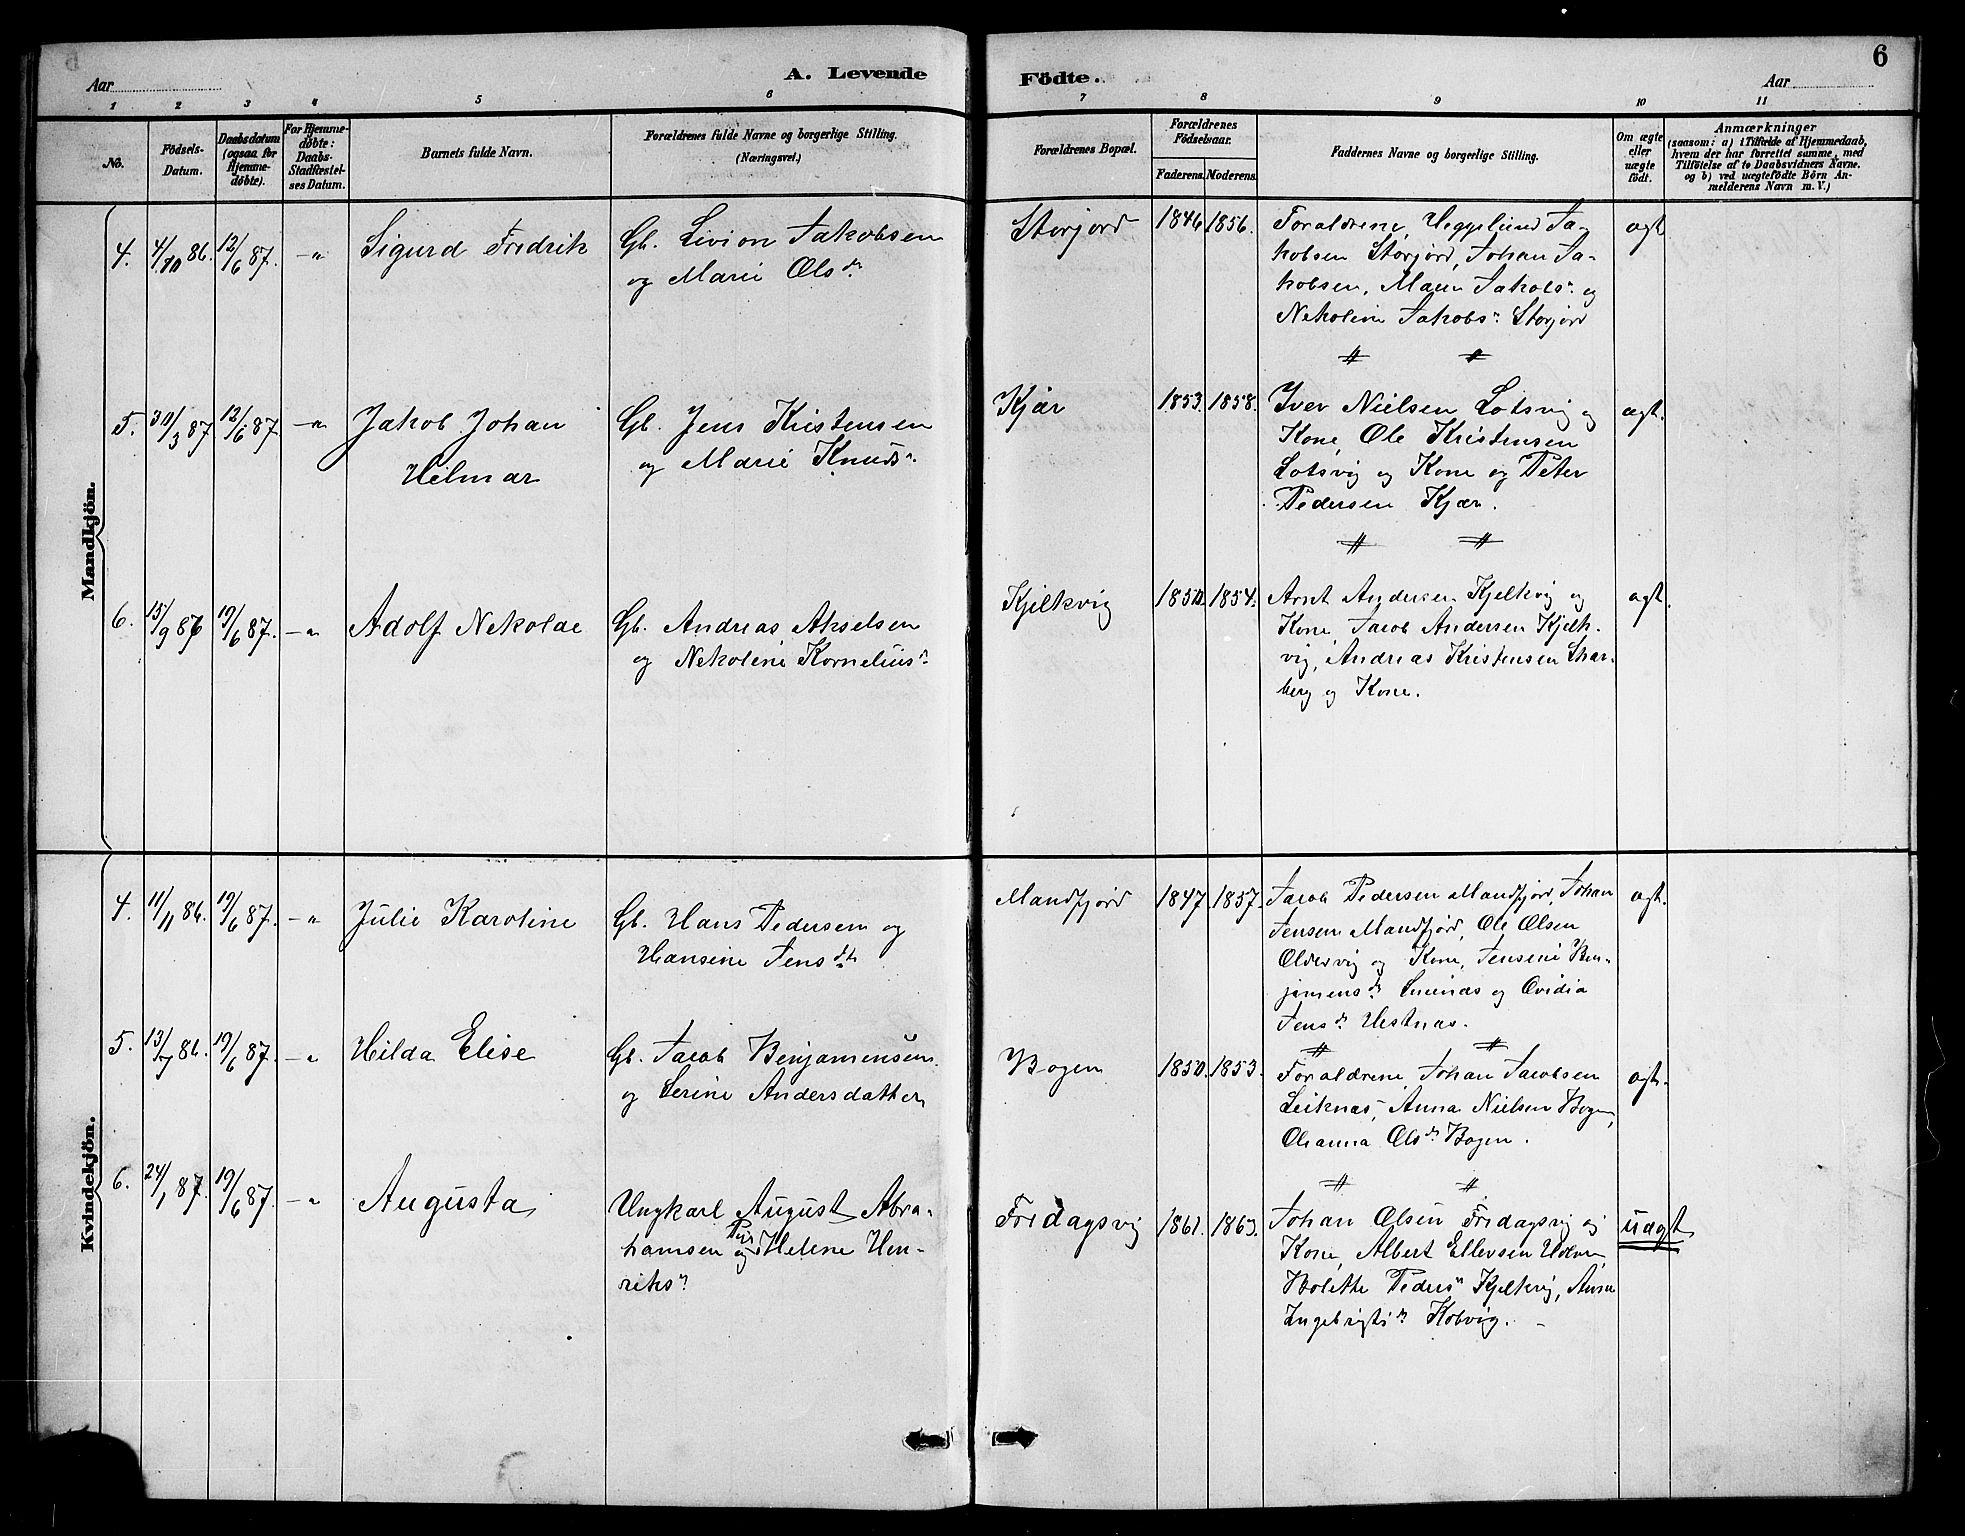 6
Aar
A. Levende
Födte.
Aar
1 2 3 4 5 6 7 8 9 10 11
No.
Födsels-
Datum.
Daabsdatum
(ogsaa for
Hjemme-
döbte).
For Hjemme-
döbte:
Daabs-
Stadfæstel-
ses Datum.
Barnets fulde Navn.
Forældrenes fulde Navne og borgerlige Stilling.
(Næringsvei.)
Forældrenes Bopæl.
Forældrenes
Födselsaar.
Faderens. Moderens.
Faddernes Navne og borgerlige Stilling.
Om ægte
eller
uægte
födt.
Anmærkninger
(saasom: a) i Tilfælde af Hjemmedaab,
hvem der har forrettet samme, med
Tilföielse af to Daabsvidners Navne.
og b) ved uægtefödte Börn An-
melderens Navn m. V.)
Mandkjön.
4. 4/10 86. 12/6 87. -"- Sigurd Fredrik
Gb. Livion Jakobsen
og Marie Olsdr
Storjord 1846 1856.
Foraldrene, Heggelund Ja-
kobsen Storjord, Johan Ja-
kobsen, Maren Jakobsdr og
Nekoline Jakobsdr Storjord
agt
5. 30/3 87 12/6 87 -"- Jakob Johan
Hilmar
Gb. Jens Kristensen
og Marie Knudsdr
Kjær 1853. 1858.
Iver Nielsen Lotsvig og
Kone, Ole Kristensen
Lotsvig og Kone og Peter
Pedersen Kjær.
agt.
6. 15/9 86 19/6 87. -"- Adolf Nekolae
Gb. Andreas Akselsen
og Nekoline Korneliusdr
Kjelkvig 1850. 1854.
Arnt Andersen Kjelkvig og
Kone, Jacob Andersen Kjelk-
vig, Andreas Kristensen Skar-
berg og Kone.
agt.
Kvindekjön.
4. 11/11 86. 19/6 87. -"- Julie Karoline
Gb. Hans Pedersen og
Hansine Jensdtr
Mandfjord 1847. 1857.
Jacob Pedersen Mandfjord, Johan
Jensen Mandfjord, Ole Olsen
Oldervig og Kone, Jensine Ben-
jamensdr og Ovidia
Jensdr Vestnæs.
agt.
5. 13/7 86. 19/6 87. -"- Hilda Elise
Gb. Jacob Benjamensen
og Serine Andersdatter
Bogen 1850. 1853.
Foraldrene, Johan Jacobsen
Leiknæs, Anna Nielsen Bogen,
Ohanna Olsdr Bogen.
agt.
6. 24/1 87. 19/6 87. -"- Augusta
Ungkarl August Abra-
hamsen og Pige Helene Hen-
riksdr
Fredagsvig 1861. 1863.
Johan Olsen Fredagsvig og
Kone, Albert Ellevsen
Bolette Pedersdr Kjelkvig, Anne
Ingebrigtsdr Kobvig.
uagt